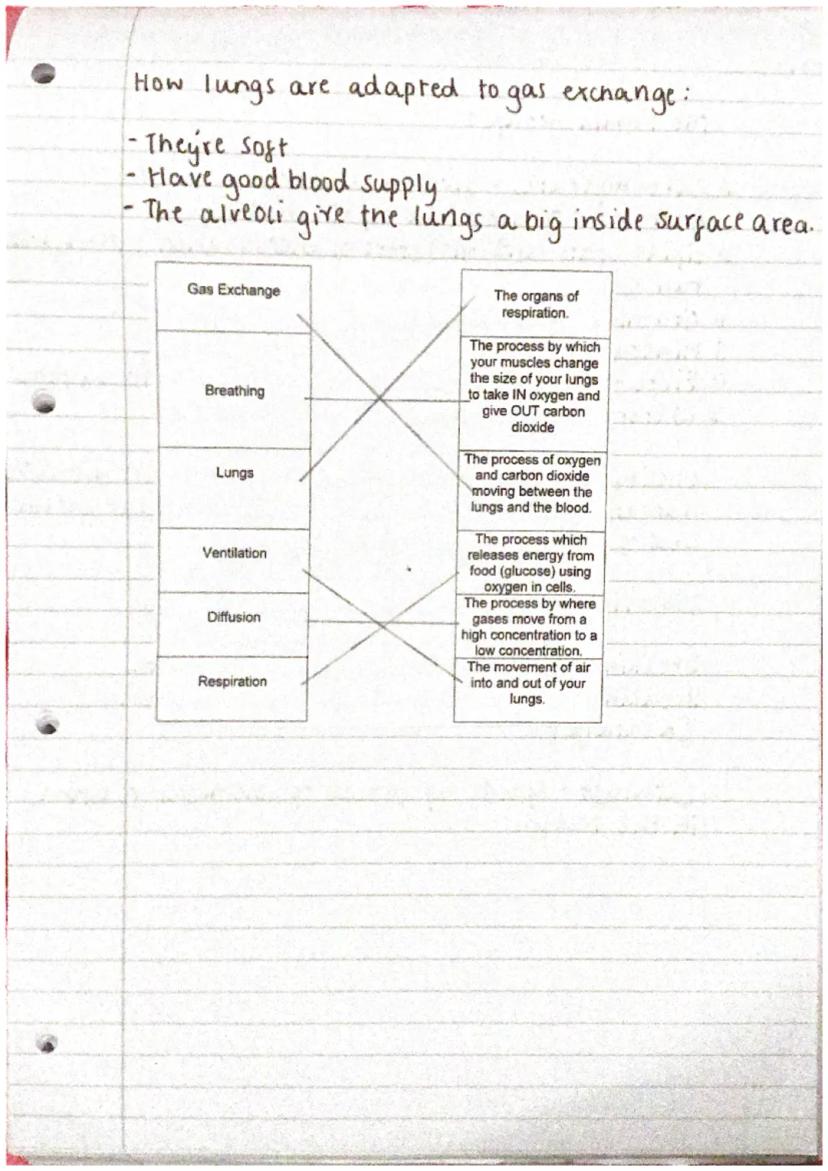 How lungs are adapted to gas exchange:
- They're soft
- Have good blood supply
- The alveoli give the lungs a big inside surface area.
Gas Exchange
Breathing
Lungs
Ventilation
Diffusion
Respiration
The organs of
respiration.
The process by which
your muscles change
the size of your lungs
to take IN oxygen and
give OUT carbon
dioxide
The process of oxygen
and carbon dioxide
moving between the
lungs and the blood.
The process which
releases energy from
food (glucose) using
oxygen in cells.
The process by where
gases move from a
high concentration to a
low concentration.
The movement of air
into and out of your
lungs.